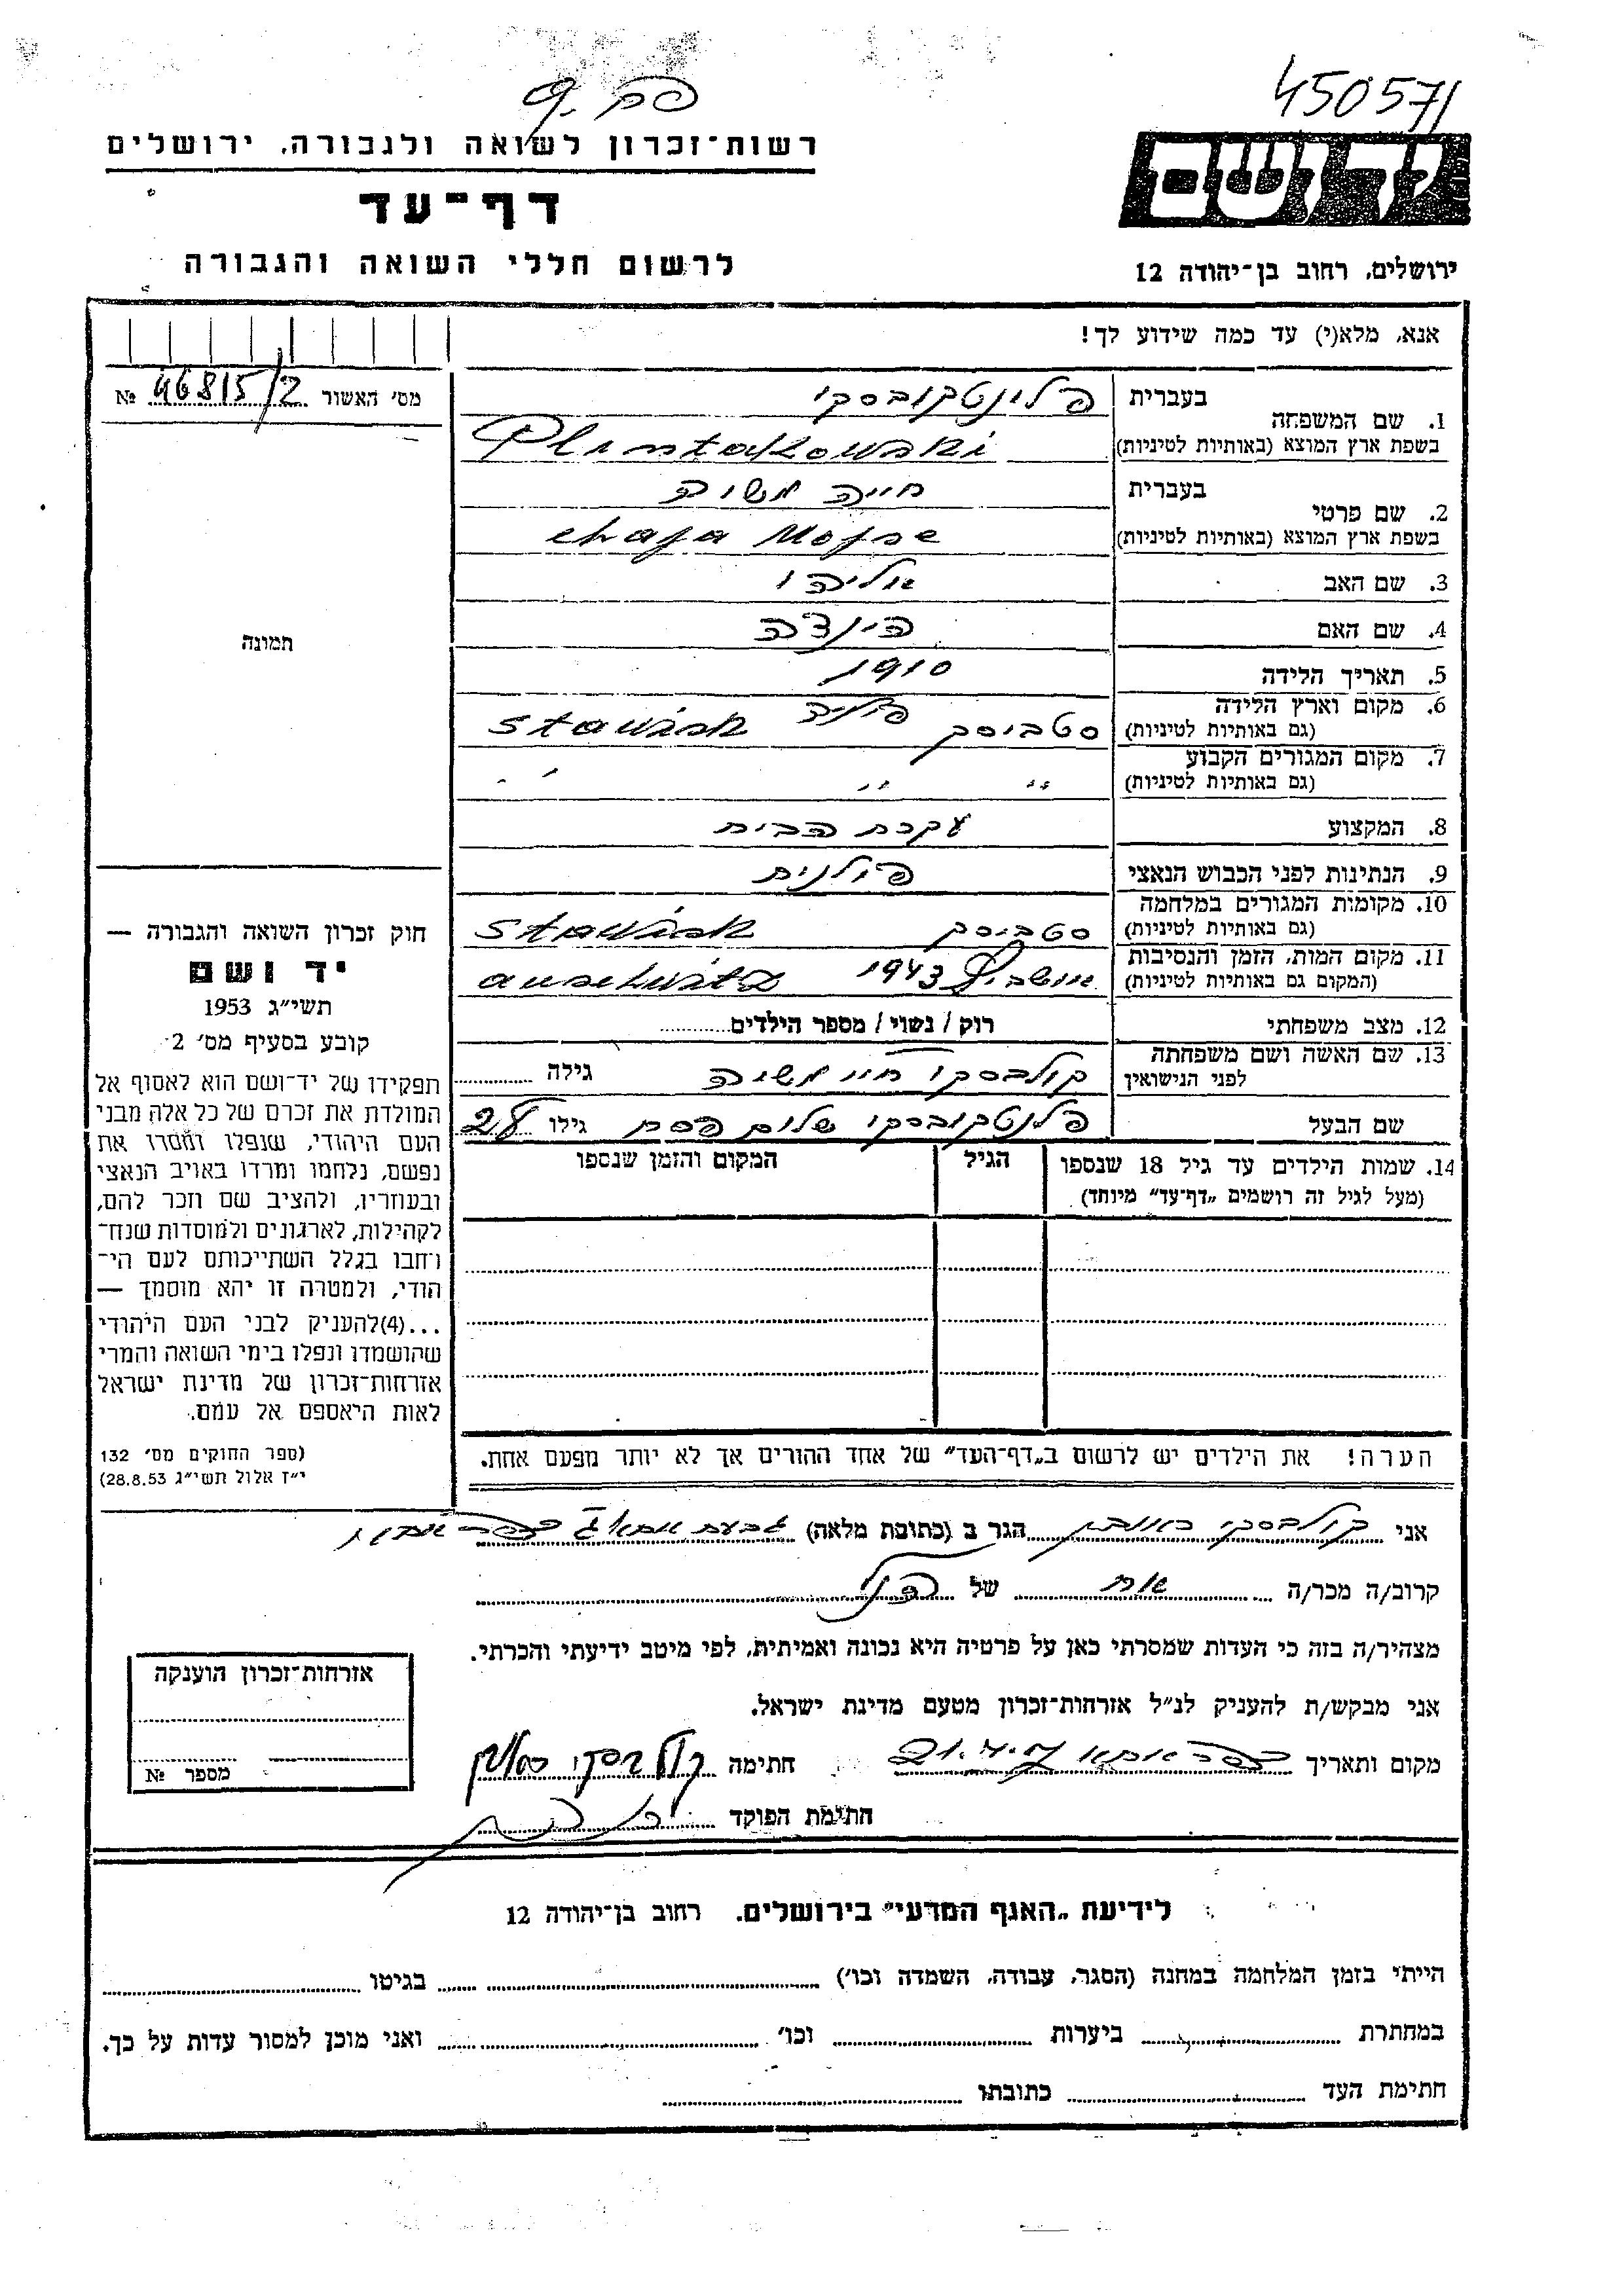 450571
רשות־זכרון לשואה ולגבורה, ירושלים
יד ושם
דף־עד
לרשום חללי השואה והגבורה
ירושלים, רחוב בן־יהודה 12
אנא, מלא(י) עד כמה שידוע לך!
מס' האשור 46815/2 №
תמונה
1. שם המשפחה
בעברית פלינטקובסקי
בשפת ארץ המוצא (באותיות לטיניות) Plintakowski
2. שם פרטי
בעברית חייה משיה
בשפת ארץ המוצא (באותיות לטיניות) chaja Mojse
3. שם האב אליהו
4. שם האם הינדה
5. תאריך הלידה 1910
6. מקום וארץ הלידה
(גם באותיות לטיניות) סטביסק פולין Stawisk
7. מקום המגורים הקבוע
(גם באותיות לטיניות) " " "
8. המקצוע עקרת הבית
9. הנתינות לפני הכבוש הנאצי פולנית
10. מקומות המגורים במלחמה
(גם באותיות לטיניות) סטביסק Stawisk
11. מקום המות, הזמן והנסיבות
(המקום גם באותיות לטיניות) אושביץ 1943 auschwitz
12. מצב משפחתי רוק / נשוי / מספר הילדים
13. שם האשה ושם משפחתה
לפני הנישואין קולבסקי חיי משיה גילה
שם הבעל פלנטקובסקי שלום פסח גילו 28
14. שמות הילדים עד גיל 18 שנספו
(מעל לגיל זה רושמים „דף־עד" מיוחד)
הגיל
המקום והזמן שנספו
הערה! את הילדים יש לרשום ב„דף־העד" של אחד ההורים אך לא יותר מפעם אחת.
חוק זכרון השואה והגבורה —
יד ושם
תשי"ג 1953
קובע בסעיף מס' 2
תפקידו של יד־ושם הוא לאסוף אל
המולדת את זכרם של כל אלה מבני
העם היהודי, שנפלו ומסרו את
נפשם, נלחמו ומרדו באויב הנאצי
ובעוזריו, ולהציב שם וזכר להם,
לקהילות, לארגונים ולמוסדות שנח־
רחבו בגלל השתייכותם לעם הי־
הודי, ולמטרה זו יהא מוסמך —
...(4)להעניק לבני העם היהודי
שהושמדו ונפלו בימי השואה והמרי
אזרחות־זכרון של מדינת ישראל
לאות היאספם אל עמם.
(ספר החוקים מס' 132
י"ז אלול תשי"ג 28.8.53)
אני קולבסקי הגר ב (כתובת מלאה)
קרוב/ה מכר/ה אח של הנ"ל
מצהיר/ה בזה כי העדות שמסרתי כאן על פרטיה היא נכונה ואמיתית, לפי מיטב ידיעתי והכרתי.
אני מבקש/ת להעניק לנ"ל אזרחות־זכרון מטעם מדינת ישראל.
מקום ותאריך חתימה קולבסקי
חתימת הפוקד
אזרחות־זכרון הוענקה
מספר №
לידיעת „האגף המדעי" בירושלים, רחוב בן־יהודה 12
הייתי בזמן המלחמה במחנה (הסגר, עבודה, השמדה וכו') בגיטו
במחתרת ביערות וכו' ואני מוכן למסור עדות על כך.
חתימת העד כתובתו